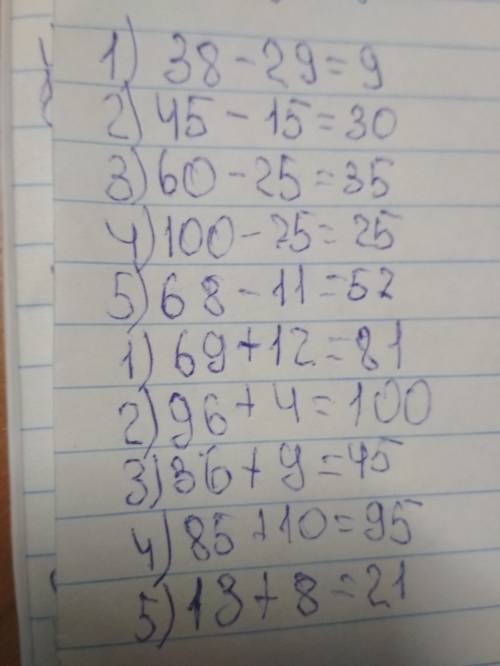 1) 38 - 29 = 9
2) 45 - 15 = 30
3) 60 - 25 = 35
4) 100 - 75 = 25
5) 68 - 11 = 57
1) 69 + 12 = 81
2) 96 + 4 = 100
3) 36 + 9 = 45
4) 85 + 10 = 95
5) 13 + 8 = 21